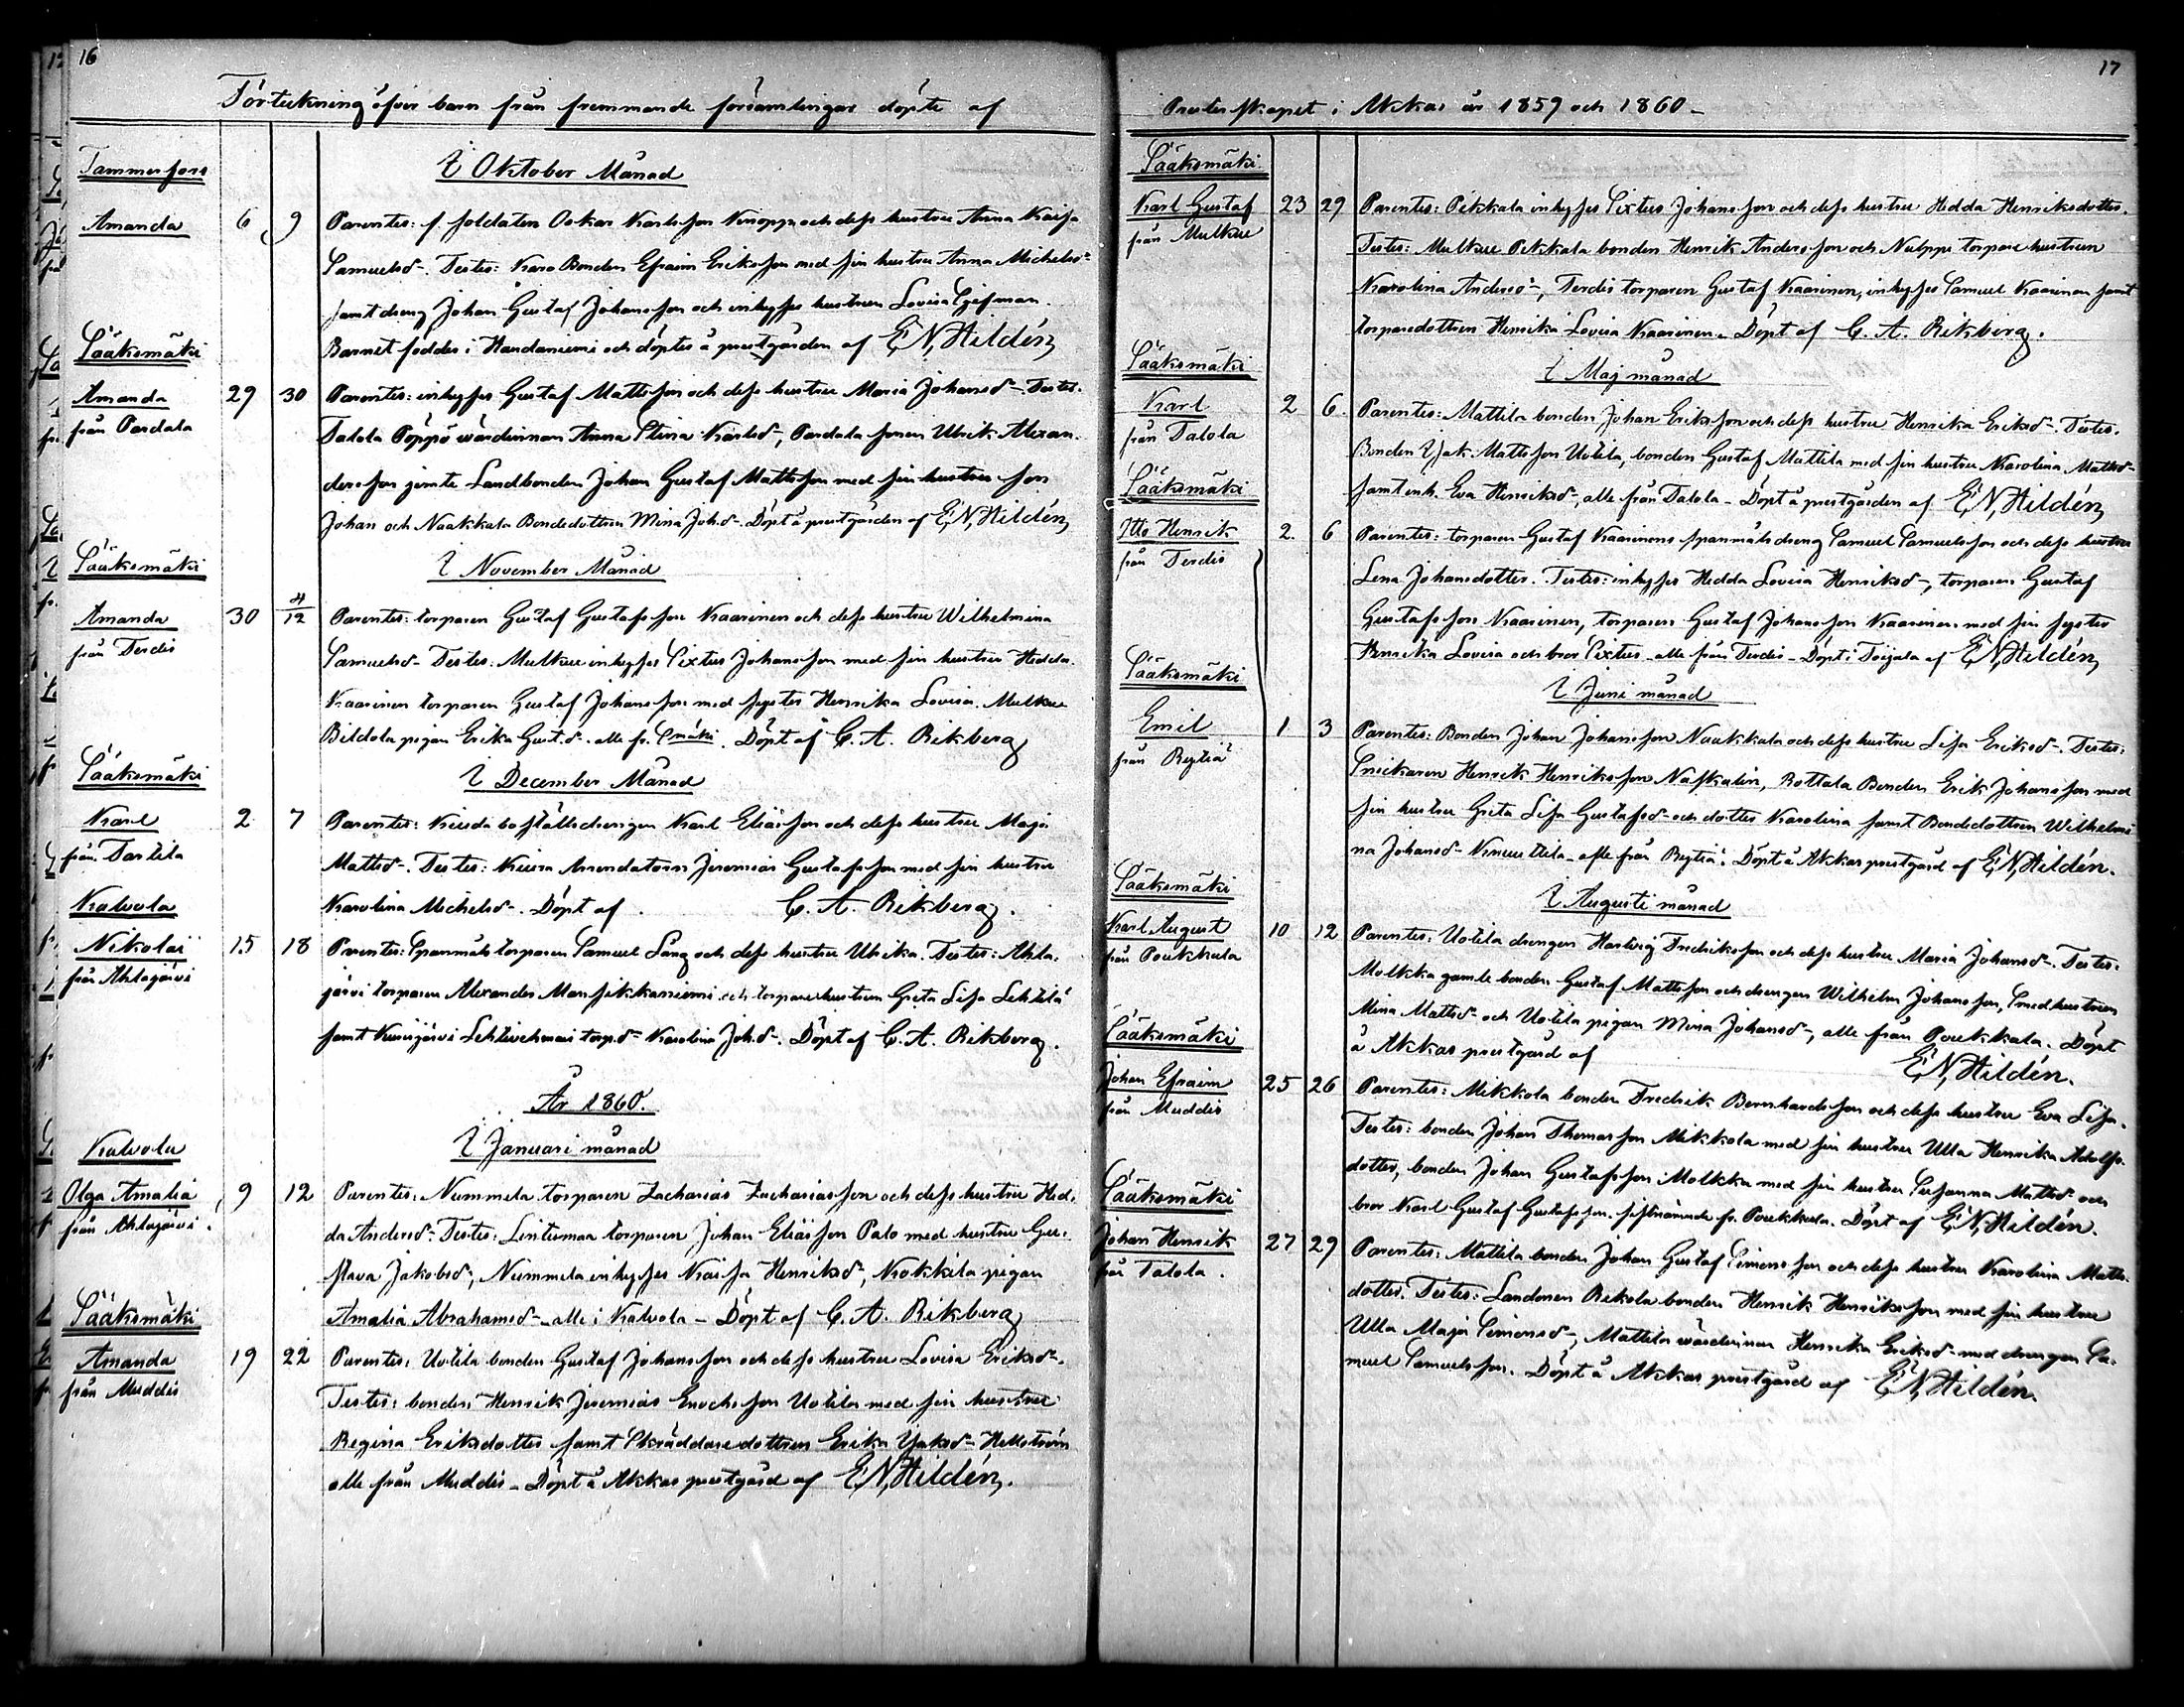 16
Förteckning öfver barn från fremmande församlingar döpte af
I Oktober Månad
Tammerfors
Amanda 6 9 Parentes: f. soldaten Oskar Karlsson Knoppe och dess hustru Anna Kaisa
Samuelsd:r. Testes: Karo Bonden Efraim Eriksson med sin hustru Anna Michelsd:r
samt dreng Johan Gustaf Johansson och inhyses hustrun Lovisa
Barnet föddes i Handaniemi och döptes å prestgården af E. N. Hildén
Sääksmäki
Amanda 29 30 Parentes: inhyses Gustaf Mattsson och dess hustru Maria Johansd:r Testes:
från Pardala Talola Pöppö värdinnan Anna Stina Karlsd:r, Pardala sonen Ulrik Alexan-
dersson jemte Landbonden Johan Gustaf Mattsson med sin hustru son
Johan och Naakkala Bondedottren Mina Joh.d:r Döpt å prestgården af E. N. Hildén
I November Månad
Sääksmäki
Amanda 30 4/12 Parentes: torparen Gustaf Gustafsson Kaarinen och dess hustru Wilhelmina
från Terdis Samuelsd:r Testes: Mulkue inhyses Sixtus Johansson med sin hustru Hedda.
Kaarinen torparen Gustaf Johansson med syster Henrika Lovisa. Mulkue
Bildola pigan Erika Gust.d:r alle fr. Smäki. Döpt af C. A. Rikberg
I December Månad
Sääksmäki
Karl 2 7 Parentes: boställsdrengen Karl Eliasson och dess hustru Maja
från Tarttila Mattsd:r. Testes: Arrendatorn Jeremias Gustafsson med sin hustru
Karolina Michelsd:r. Döpt af C. A. Rikberg.
Kalvola
Nikolai 15 18 Parentes: Spanmåls torparen Samuel Lång och dess hustru Ulrika. Testes: Ahla-
från Ahlajärvi järvi torparen Alexander Mansikkaniemi och torparehustrun Greta Lisa Lehtelä
samt torp.d:r Karolina Joh.d:r. Döpt af C. A. Rikberg.
År 1860.
I Januari månad
Kalvola
Olga Amalia 9 12 Parentes: Nummela torparen Zacharias Zachariasson och dess hustru Hed-
från Ahlajärvi. da Andersd:r Testes: Lintumaa torparen Johan Eliasson Palo med hustru Gu-
stava Jakobsd:r, Nummela inhyses Kaisa Henriksd:r, Kokkila pigan
Amalia Abrahamsd:r alle i Kalvola – Döpt af C. A. Rikberg
Sääksmäki
Amanda 19 22 Parentes: Uotila bonden Gustaf Johansson och dess hustru Lovisa Eriksd:r.
från Muddis Testes: bonden Henrik Jeremias Enochsson Uotila med sin hustru
Regina Eriksdotter samt Skräddaredottren Erika Jaksd:r Hellström
alle från Muddis – Döpt å Akkas prestgård af E. N. Hildén.
17
Presterskapet i Akkas år 1859 och 1860 –
Sääksmäki
Karl Gustaf 23 29 Parentes: Pikkala inhyses Sixtus Johansson och dess hustru Hedda Henriksdotter.
från Mulkue Testes: Mulkue Pikkala bonden Henrik Andersson och Nulppi torpare hustrun
Karolina Andersd:r, Terdis torparen Gustaf Kaarinen, inhyses Samuel Kaarinen samt
torparedottren Henrika Lovisa Kaarinen. Döpt af C. A. Rikberg.
I Maj månad
Sääksmäki
Karl 2 6 Parentes: Mattila bonden Johan Eriksson och dess hustru Henrika Eriksd:r. Testes.
från Talola Bonden Isak Mattsson Uotila, bonden Gustaf Mattila med sin hustru Karolina Mattsd:r
samt enk. Eva Henriksd:r, alle från Talola – Döpt å prestgården af E. N. Hildén
Sääksmäki
Otto Henrik 2. 6 Parentes: torparen Gustaf Kaarinens spanmåls dreng Samuel Samuelsson och dess hustru
från Terdis Lena Johansdotter. Testes: inhyses Hedda Lovisa Henriksd:r, torparen Gustaf
Gustafsson Kaarinen, torparen Gustaf Johansson Kaarinen med sin syster
Henrika Lovisa och bror Sixtus – alle från Terdis – Döpt i Toijala af E. N. Hildén
I Juni månad
Sääksmäki
Emil 1 3 Parentes: Bonden Johan Johansson Naakkala och dess hustru Lisa Eriksd:r. Testes:
från Reytiä Snickaren Henrik Henriksson Näskalin, Rottala Bonden Erik Johansson med
sin hustru Greta Lisa Gustafsd:r och dotter Karolina samt Bondedottren Wilhelmi
na Johansd:r Knuuttila – alle från Reytiä. Döpt å Akkas prestgård af E. N. Hildén.
I Augusti månad
Sääksmäki
Karl August 10 12 Parentes: Uotila drengen Hartvig Fredriksson och dess hustru Maria Johansd:r. Testes:
från Roukkula Molkka gamle bonden Gustaf Mattsson och drengen Wilhelm Johansson, Smedhustrun
Mina Mattsd:r och Uotila pigan Mina Johansd:r, alle från Roukkula. Döpt
å Akkas prestgård af E. N. Hildén.
Sääksmäki
Johan Efraim 25 26 Parentes: Mikkola bonden Fredrik Bernhardsson och dess hustru Eva Lisa.
från Muddis Testes: bonden Johan Thomasson Mikkola med sin hustru Ulla Henrika Adolfs-
dotter, bonden Johan Gustafsson Molkka med sin hustru Susanna Mattsd:r och
bror Karl Gustaf Gustafsson. sistnämnde fr. Roukkula. Döpt af E. N. Hildén.
Sääksmäki
Johan Henrik 27 29 Parentes: Mattila bonden Johan Gustaf Simonsson och dess hustru Karolina Matts-
från Talola. dotter. Testes: Landonen Rekola bonden Henrik Henriksson med sin hustru
Ulla Maja Simonsd:r, Mattila värdinnan Henrika Eriksd:r med drengen Sa-
muel Samuelsson. Döpt å Akkas prestgård af E. N. Hildén.